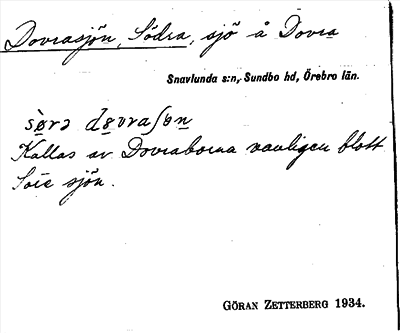 Dovrasjön, Södra, sjö å Dovra
Snavlunda s:n, Sundbo hd, Örebro län.
sørə dovraʃøn
Kallas av Dovraborna vanligen blott
sjön.
GÖRAN ZETTERBERG 1934.